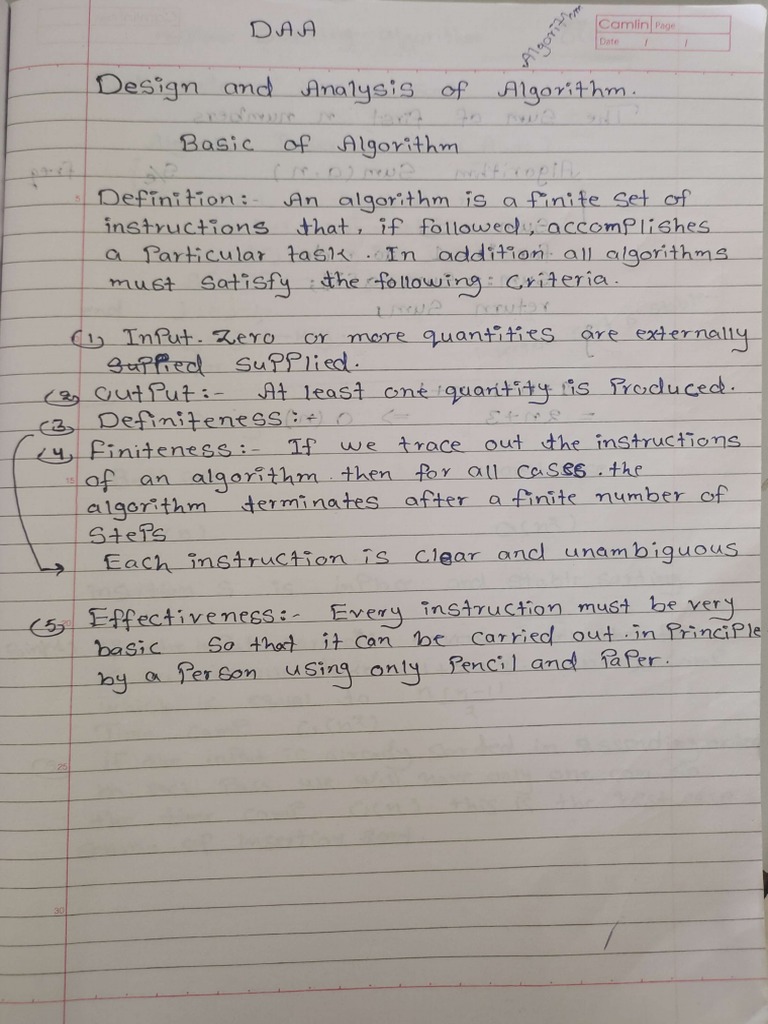 DAA
Algorithm
Camlin Page
Date / /
Design and Analysis of Algorithm.
Basic of Algorithm
Definition:- An algorithm is a finite set of
instructions that, if followed, accomplishes
a Particular task. In addition all algorithms
must satisfy the following criteria.
(1) Input. Zero or more quantities are externally
suppied supplied.
(2) output:- At least one quantity is Produced.
(3) Definiteness:-
(4) Finiteness:- If we trace out the instructions
of an algorithm. then for all cases. the
algorithm terminates after a finite number of
Steps
Each instruction is clear and unambiguous
(5) Effectiveness:- Every instruction must be very
basic so that it can be carried out. in Principle
by a Person using only Pencil and Paper.
25
30